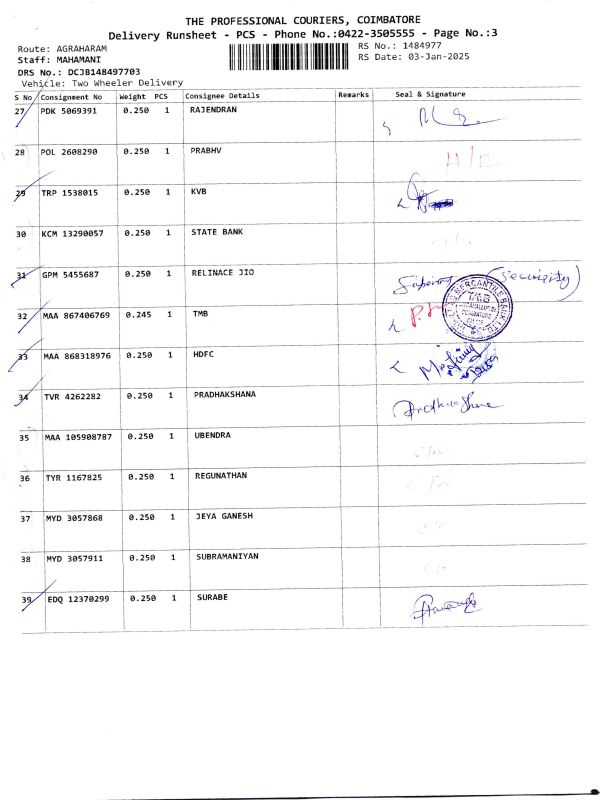 THE PROFESSIONAL COURIERS, COIMBATORE
Delivery Runsheet - PCS - Phone No.:0422-3505555 - Page No.:3
Route: AGRAHARAM RS No.: 1484977
Staff: MAHAMANI RS Date: 03-Jan-2025
DRS No.: DCJB148497703
Vehicle: Two Wheeler Delivery
S No Consignment No Weight PCS Consignee Details Remarks Seal & Signature
27 PDK 5069391 0.250 1 RAJENDRAN
28 POL 2608290 0.250 1 PRABHV
29 TRP 1538015 0.250 1 KVB
30 KCM 13290057 0.250 1 STATE BANK
31 GPM 5455687 0.250 1 RELINACE JIO (Security)
32 MAA 867406769 0.245 1 TMB
33 MAA 868318976 0.250 1 HDFC
34 TVR 4262282 0.250 1 PRADHAKSHANA
35 MAA 105908787 0.250 1 UBENDRA
36 TYR 1167825 0.250 1 REGUNATHAN
37 MYD 3057868 0.250 1 JEYA GANESH
38 MYD 3057911 0.250 1 SUBRAMANIYAN
39 EDQ 12370299 0.250 1 SURABE